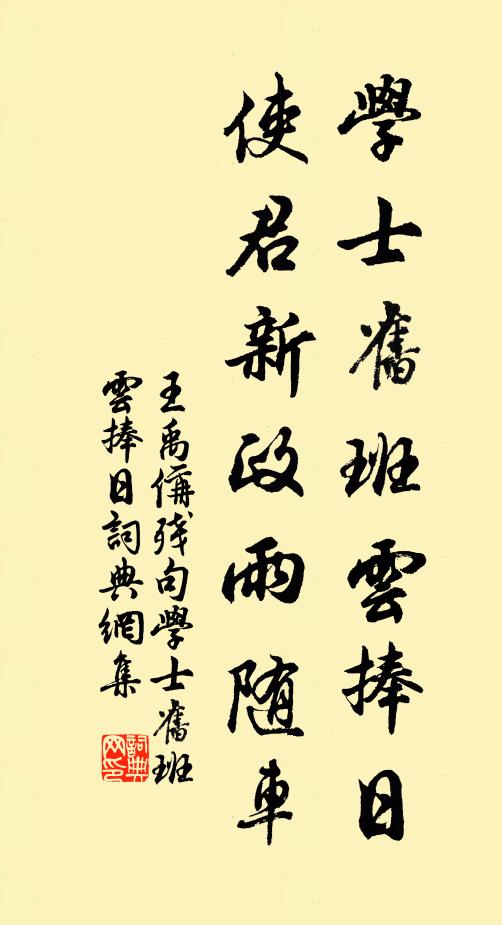 學士舊班雲捧日
使君新政雨随車
王禹偁殘句學士舊班
雲捧日詞典網集
詞典
网印